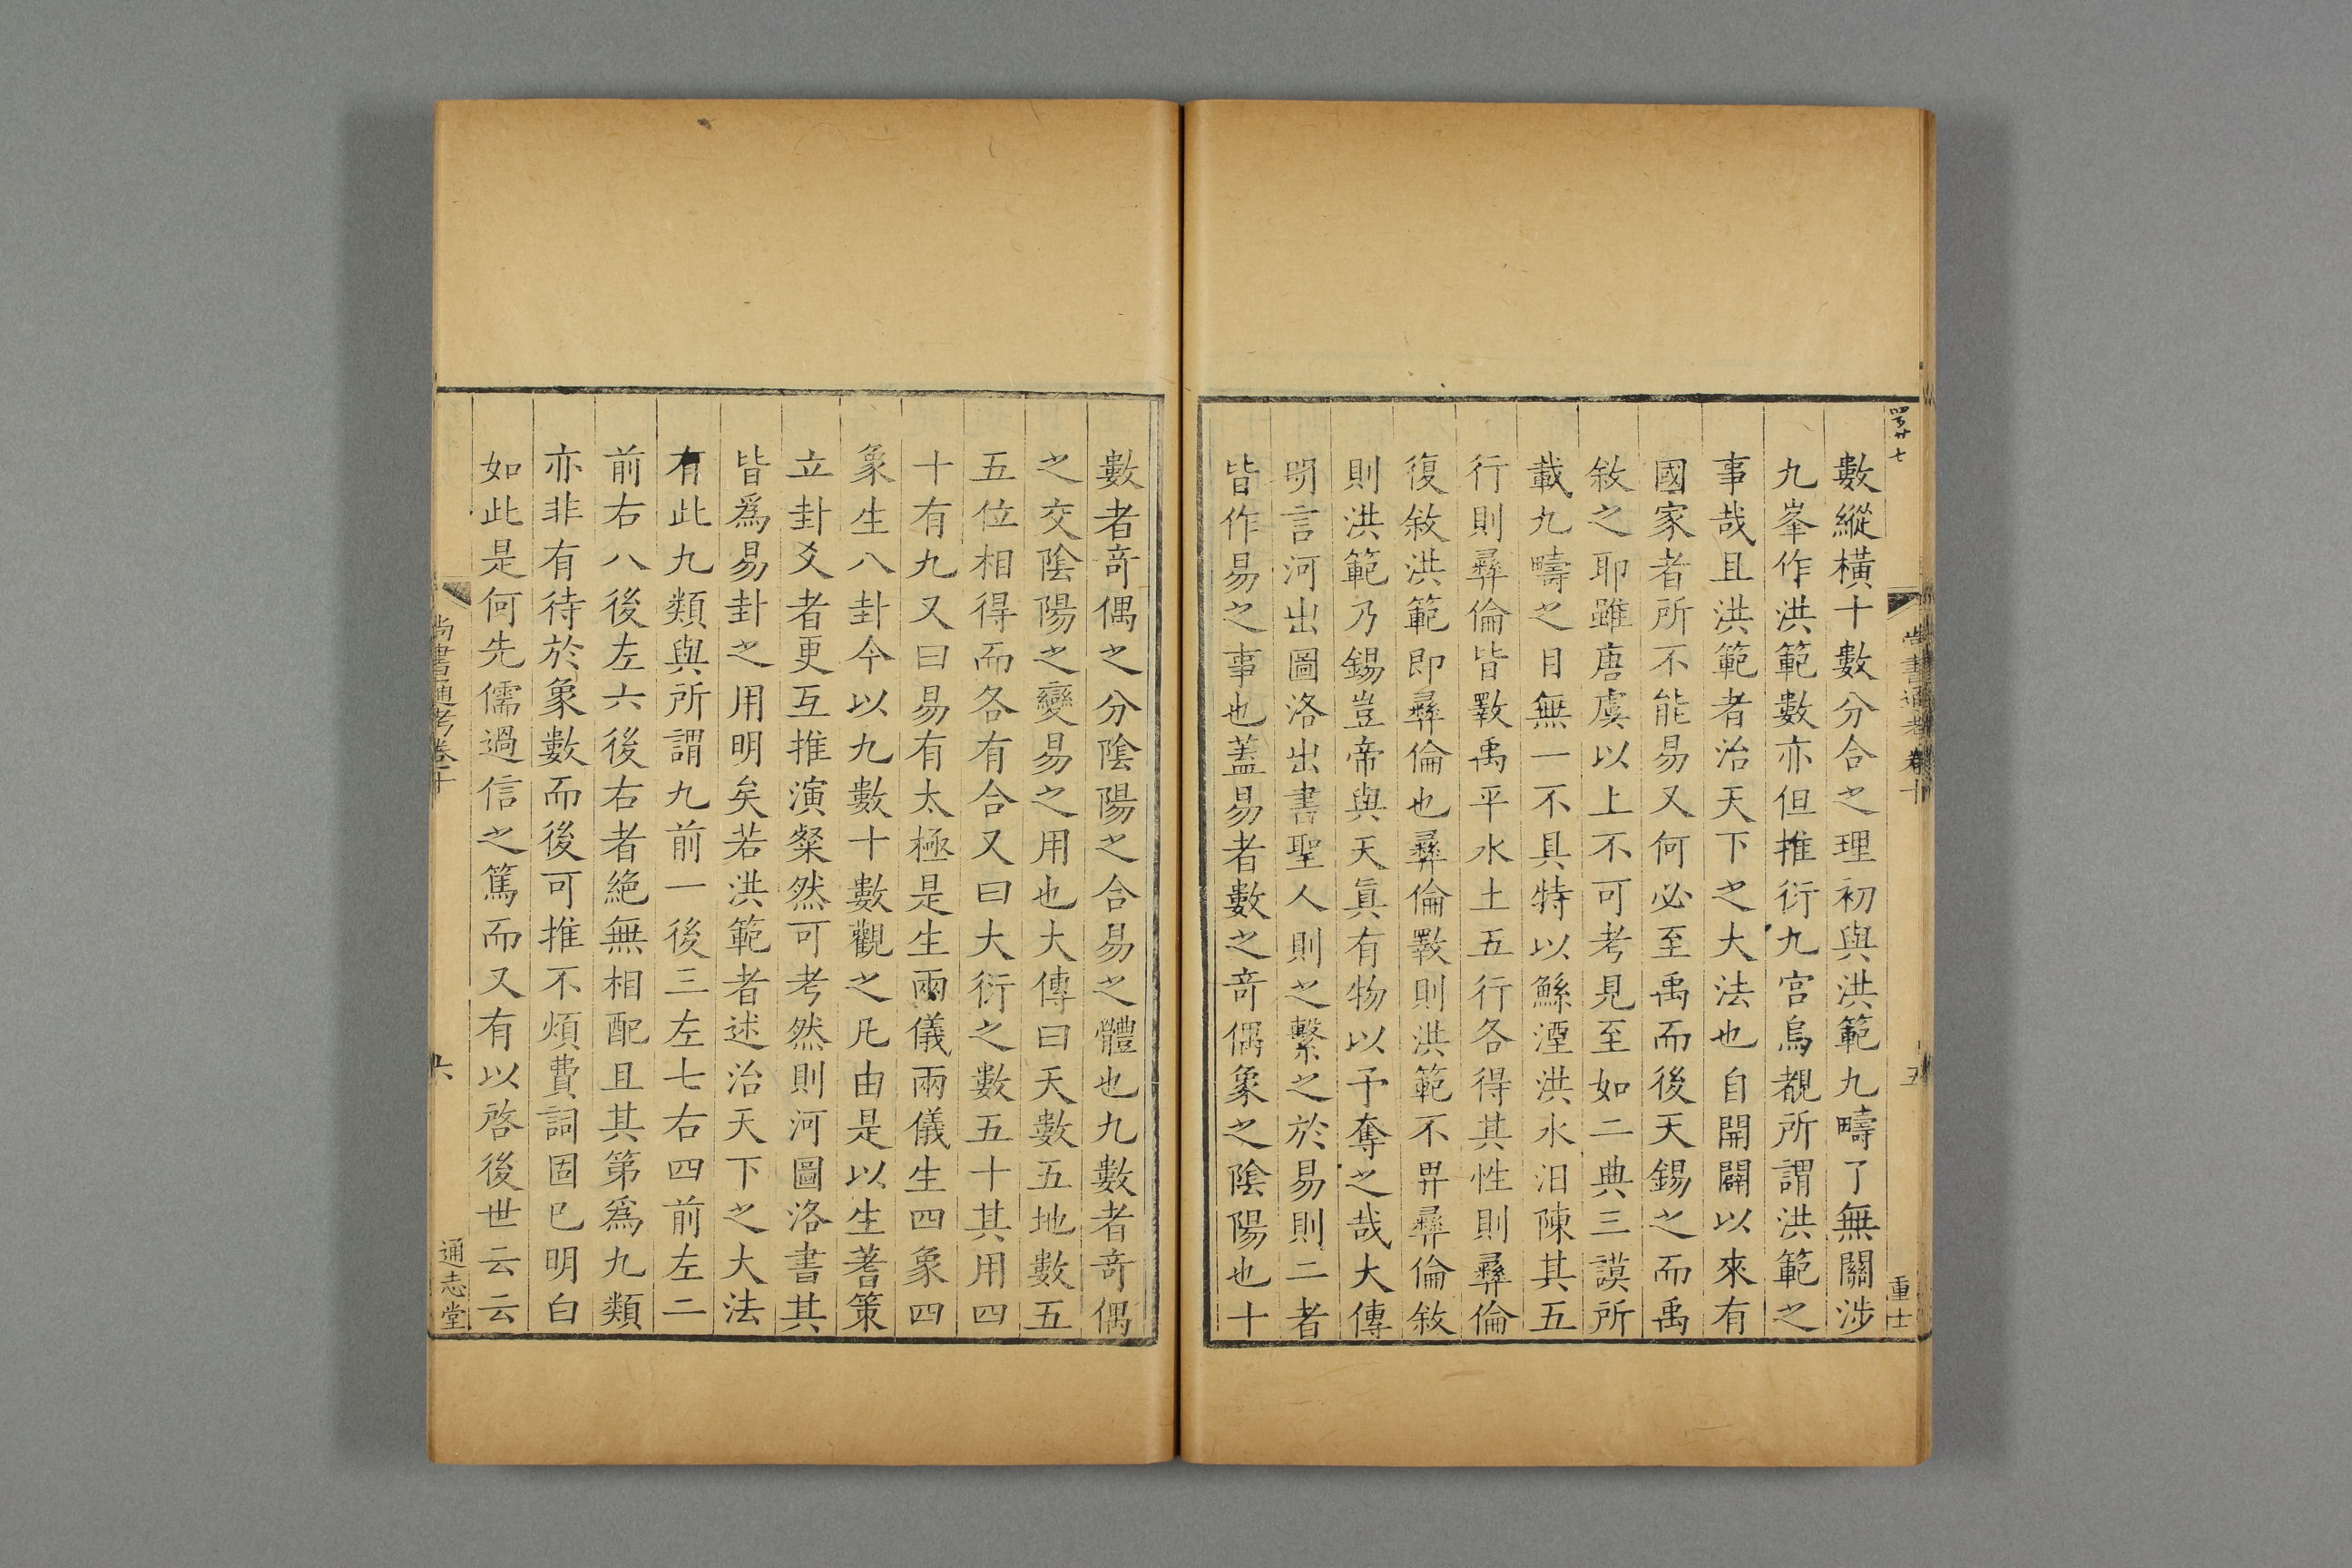 數縱橫十數分合之理初與洪範九疇了無關涉
九峯作洪範數亦但推衍九宮烏覩所謂洪範之
事哉且洪範者治天下之大法也自開闢以來有
國家者所不能易又何必至禹而後天錫之而禹
敘之耶雖唐虞以上不可考見至如二典三謨所
載九疇之目無一不具特以鯀湮洪水汨陳其五
行則彝倫皆斁禹平水土五行各得其性則彝倫
復敘洪範即彝倫也彝倫斁則洪範不畀彝倫敘
則洪範乃錫豈帝與天真有物以予奪之哉大傳
明言河出圖洛出書聖人則之繫之於易則二者
皆作易之事也蓋易者數之奇偶象之陰陽也十
尚書通考卷十
五
數者奇偶之分陰陽之合易之體也九數者奇偶
之交陰陽之變易之用也大傳曰天數五地數五
五位相得而各有合又曰大衍之數五十其用四
十有九又曰易有太極是生兩儀兩儀生四象四
象生八卦今以九數十數觀之凡由是以生蓍策
立卦爻者更互推演粲然可考然則河圖洛書其
皆爲易卦之用明矣若洪範者述治天下之大法
有此九類與所謂九前一後三左七右四前左二
前右八後左六後右者絶無相配且其第爲九類
亦非有待於象數而後可推不煩費詞固已明白
如此是何先儒過信之篤而又有以啓後世云云
尚書通考卷十
六
通志堂